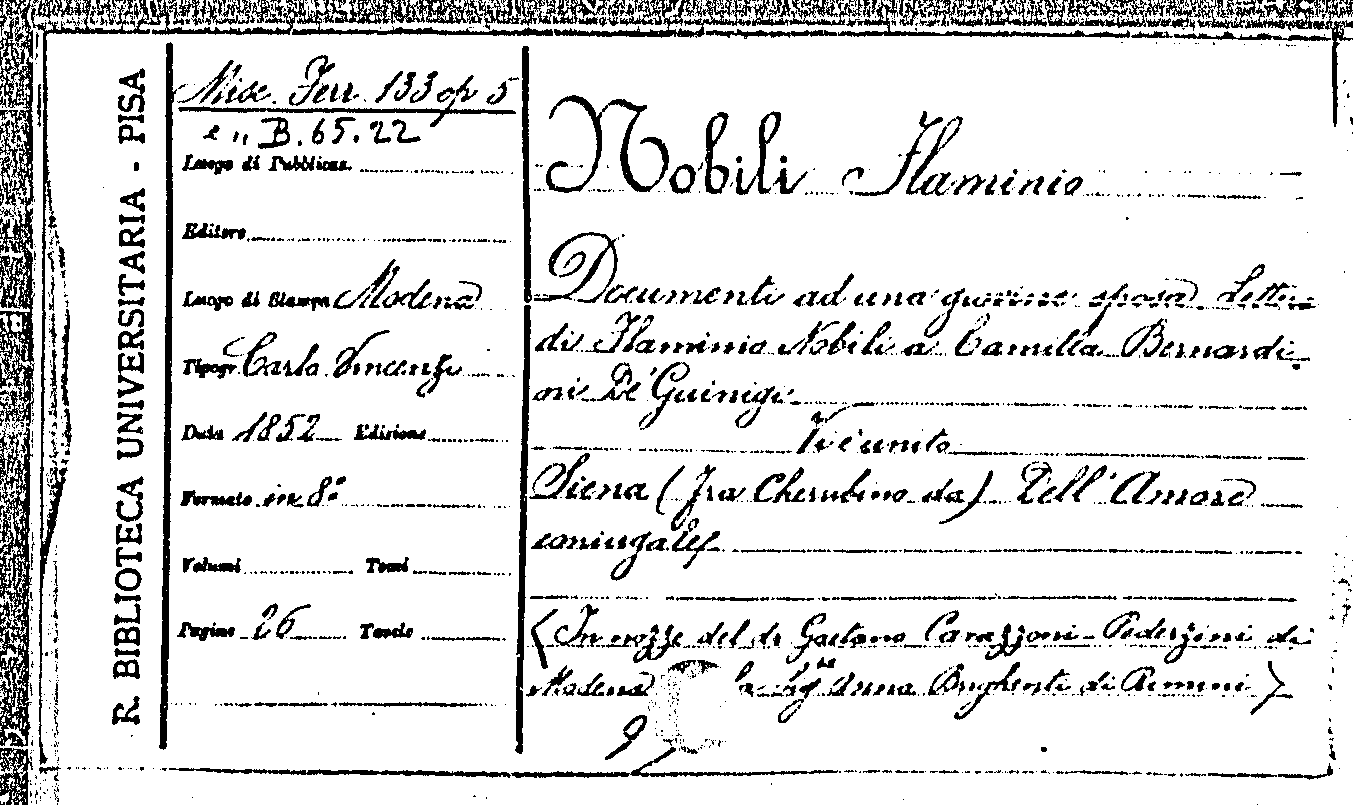 R. BIBLIOTECA UNIVERSITARIA - PISA
Misc. Ferr. 133 op 5
e „ B.65.22
Luogo di Pubblicaz.
Editore
Luogo di Stampa Modena
Tipogr. Carlo Vincenzi
Data 1852 Edizione
Formato in 8°
Volumi Tomi
Pagine 26 Tavole
Nobili Flaminio
Documenti ad una giovine sposa. Lettera
di Flaminio Nobili a Camilla Bernardi
ni De' Guinigi
Vi è unito
Siena (Fra Cherubino da) Dell' Amore
coniugale
(In nozze del dr Gaetano Carazzoni-Pederzini di
Modena la Sig.na Anna Brighenti di Rimini)